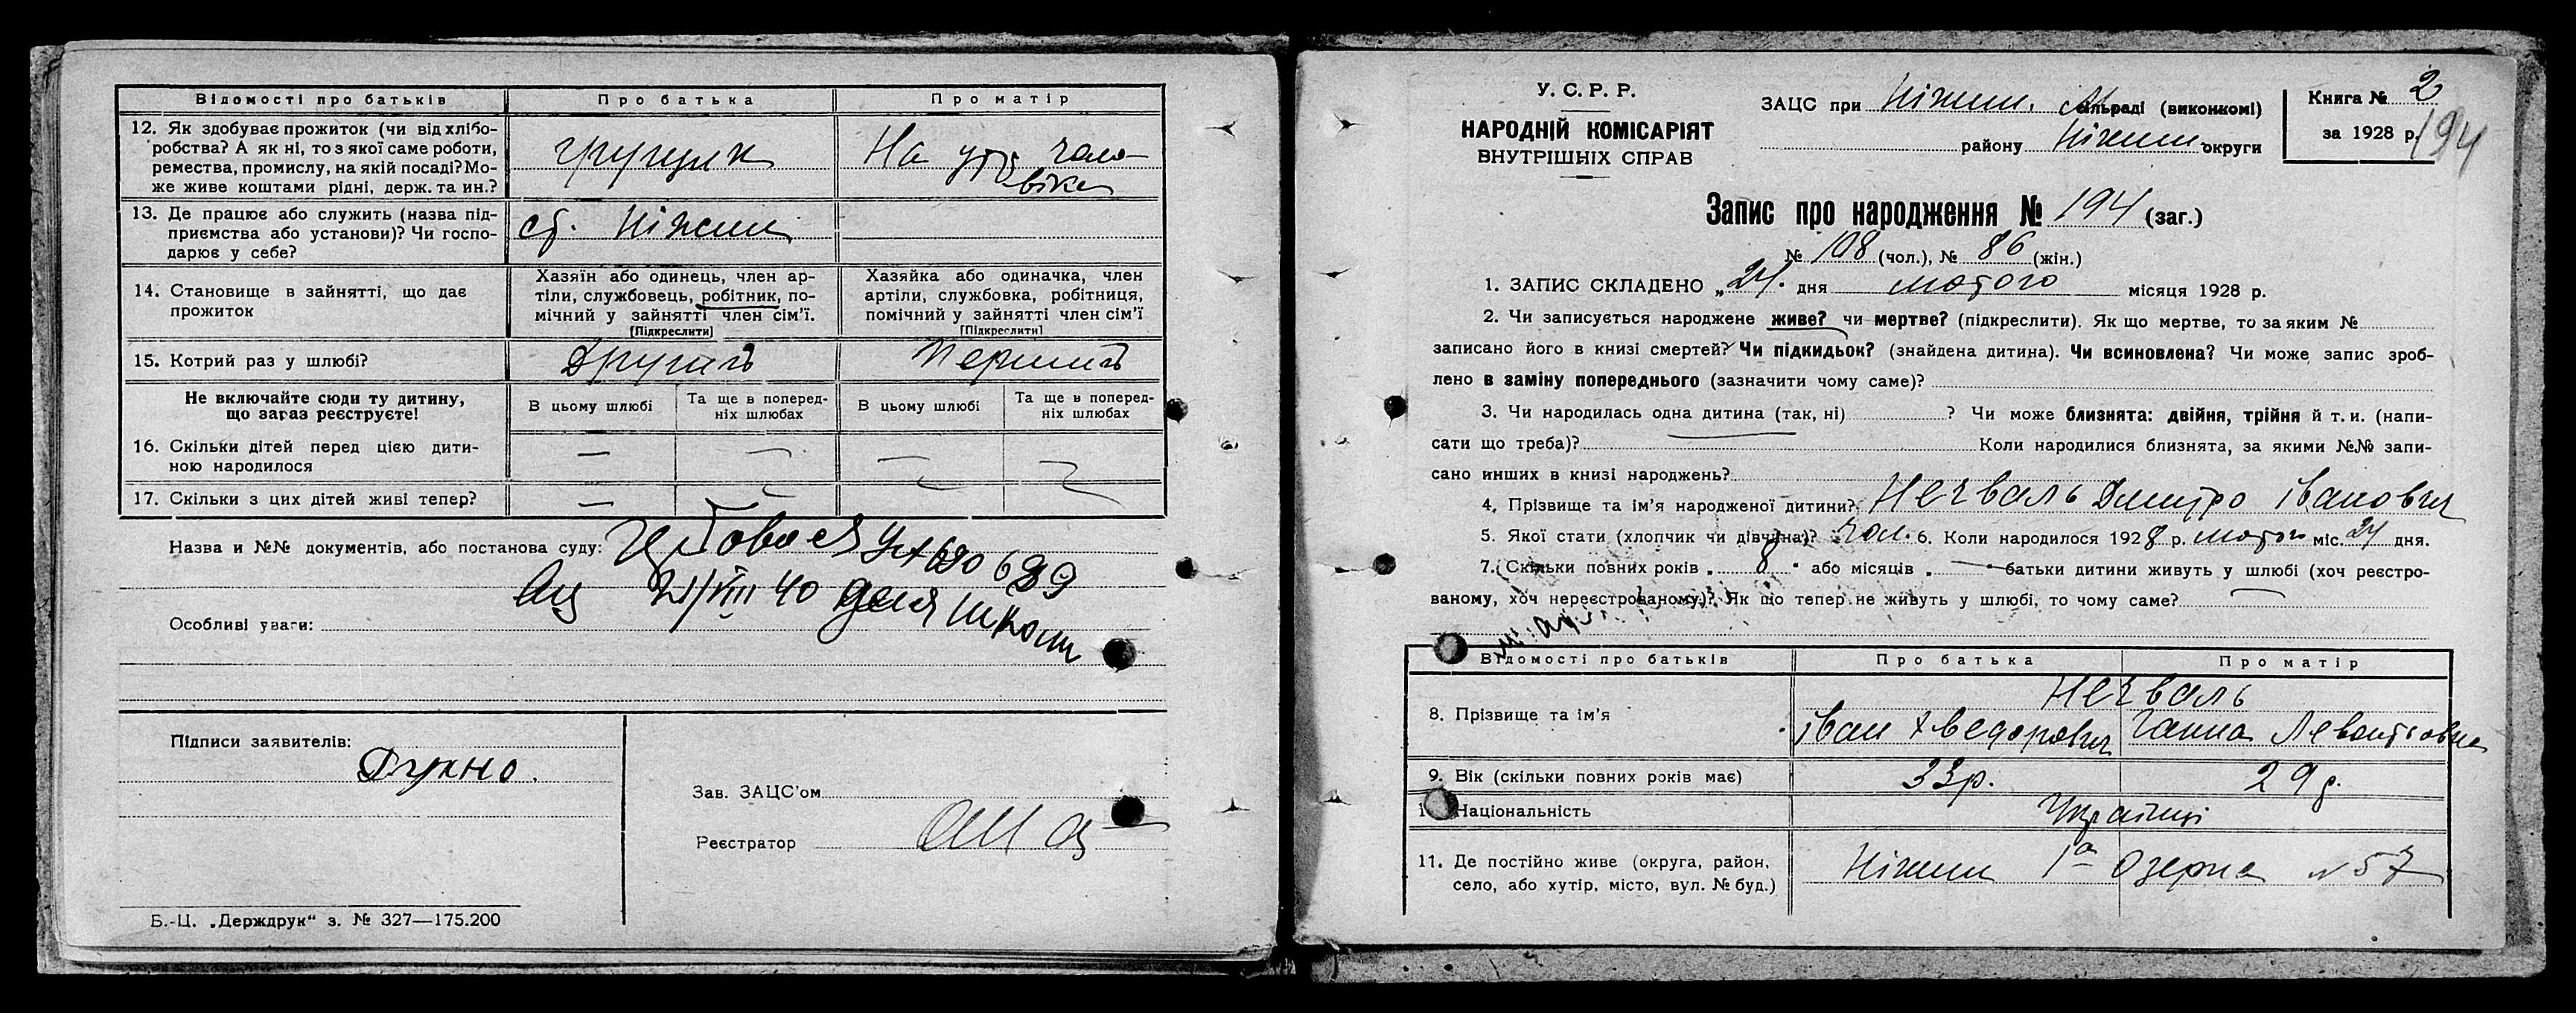 Відомості про батьків Про батька Про матір
12. Як здобуває прожиток (чи від хлібо-
робства? А як ні, то з якої саме роботи,
ремества, промислу, на якій посаді? Мо-
же живе коштами рідні, держ. та ин.?
На утр. чоло-
віка
13. Де працює або служить (назва під-
приємства або установи)? Чи госпо-
дарює у себе?
ст. Ніжин
14. Становище в зайнятті, що дає
прожиток
Хазяїн або одинець, член ар-
тілі, службовець, робітник, по-
мічний у зайнятті член сім'ї.
[Підкреслити]
Хазяйка або одиначка, член
артілі, службовка, робітниця,
помічний у зайнятті член сім'ї
[Підкреслити]
15. Котрий раз у шлюбі? Другий Перший
Не включайте сюди ту дитину,
що зараз реєструєте!
В цьому шлюбі Та ще в поперед-
ніх шлюбах В цьому шлюбі Та ще в поперед-
ніх шлюбах
16. Скільки дітей перед цією дити-
ною народилося — — — —
17. Скільки з цих дітей живі тепер? — — — —
Назва и №№ документів, або постанова суду:
21/VIII 40 для школи
Особливі уваги:
Підписи заявителів:
Зав. ЗАЦС'ом
Реєстратор
Б.-Ц. „Держдрук“ з. № 327—175.200
У. С. Р. Р.
НАРОДНІЙ КОМІСАРІЯТ
ВНУТРІШНІХ СПРАВ
ЗАЦС при Ніжин. сільраді (виконкомі)
району Ніжин. округи
Книга № 2
за 1928 р.
194
Запис про народження № 194 (заг.)
№ 108 (чол.), № 86 (жін.)
1. ЗАПИС СКЛАДЕНО „24. дня лютого місяця 1928 р.
2. Чи записується народжене живе? чи мертве? (підкреслити). Як що мертве, то за яким №
записано його в книзі смертей? Чи підкидьок? (знайдена дитина). Чи всиновлена? Чи може запис зроб-
лено в заміну попереднього (зазначити чому саме)?
3. Чи народилась одна дитина (так, ні) ? Чи може близнята: двійня, трійня й т. и. (напи-
сати що треба)? Коли народилися близнята, за якими №№ запи-
сано инших в книзі народжень?
4. Прізвище та ім'я народженої дитини? Нечваль Дмитро Іванович
5. Якої стати (хлопчик чи дівчина)? чол. 6. Коли народилося 1928 р. лютого міс. 24 дня.
7. Скільки повних років „ 8 “ або місяців „ — “ батьки дитини живуть у шлюбі (хоч реєстро-
ваному, хоч нереєстрованому)? Як що тепер не живуть у шлюбі, то чому саме? —
Відомості про батьків Про батька Про матір
Нечваль
8. Прізвище та ім'я Іван Хведорович Ганна Левонтьовна
9. Вік (скільки повних років має) 33 р. 29 р.
Національність Українці
11. Де постійно живе (округа, район,
село, або хутір, місто, вул. № буд.)
Ніжин 1а Озерна № 57